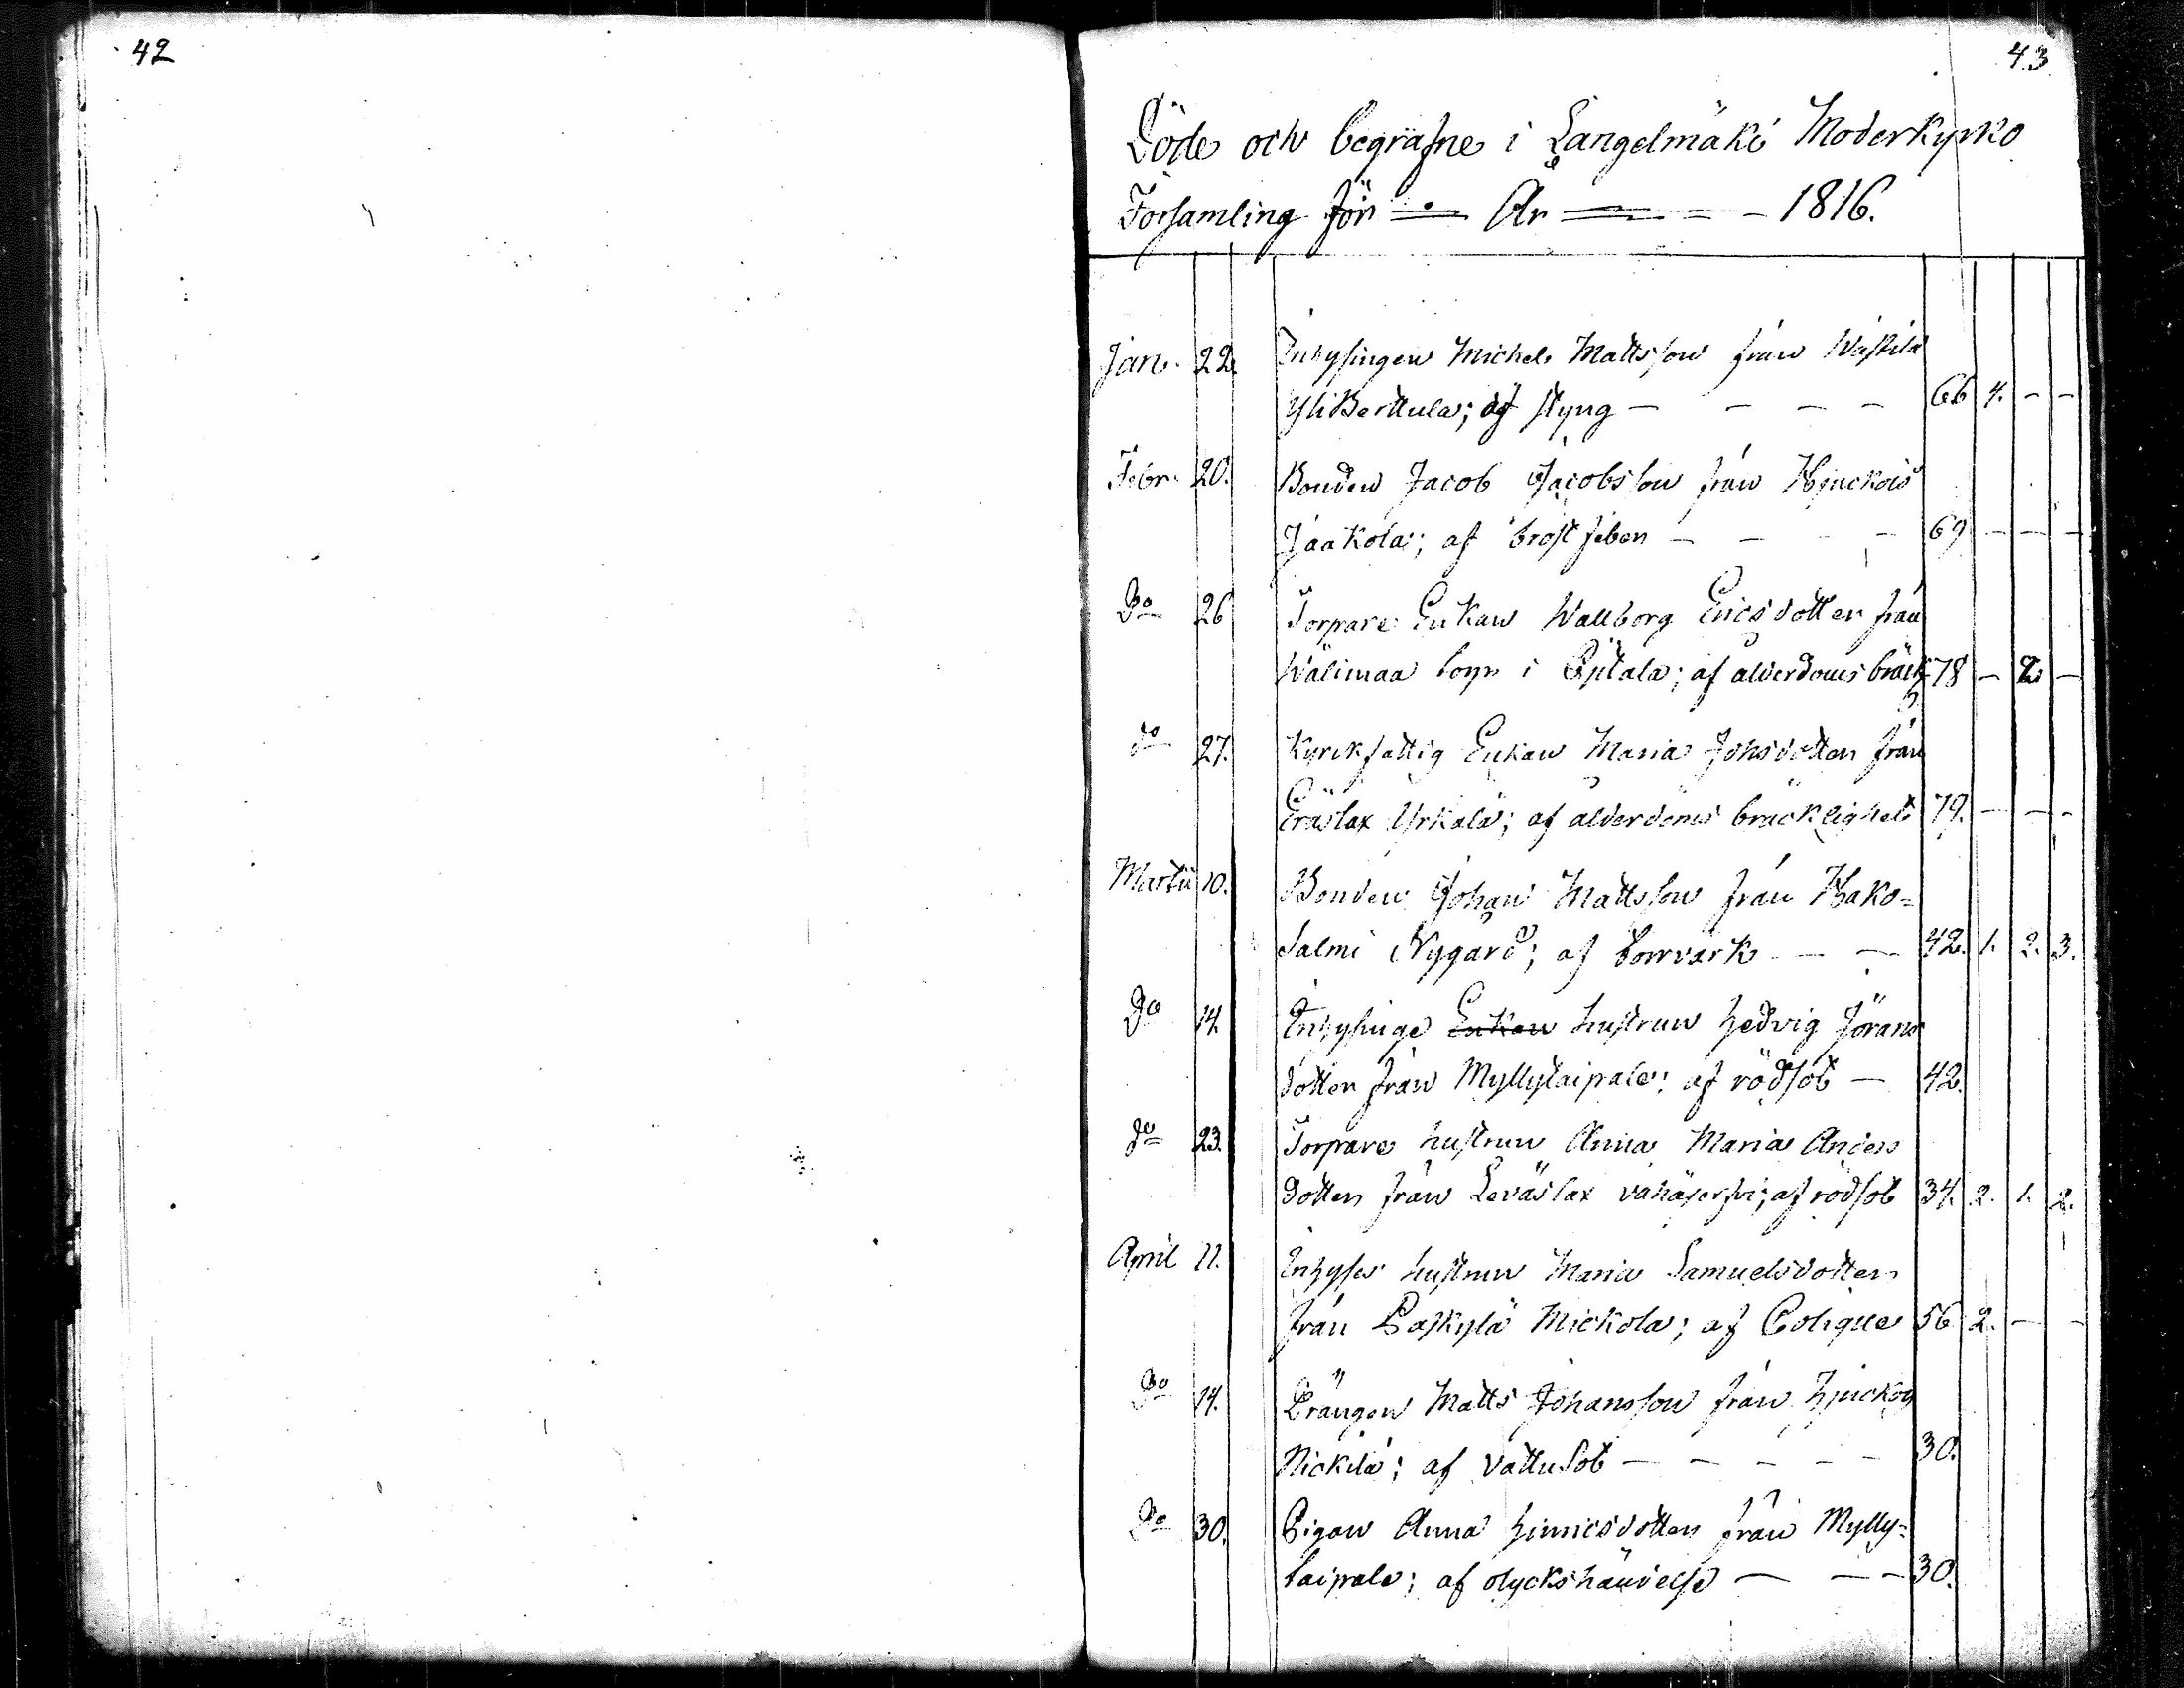 42
43
Döde och begrafne i Längelmäki Moderkyrko
Församling för År 1816.
Jan. 22. Inhysingen Michel Mattsson från Wästilä
YliBerttula; af styng — — — — 66 4. - -
Febr. 20. Bonden Jacob Jacobsson från Hiuckois
Jaakola; af bröstfeber — — — — 69 - - -
Do 26 Torpare Enkan Wallborg Ericsdotter från
Wälimaa torp i Attala; af ålderdoms bräckl. 78 - 2 -
do 27. Kyrckfattig Enkan Maria Johsdotter från
Eräslax Yrkälä; af ålderdoms bräcklighet 79. - - -
Martii 10. Bonden Johan Mattsson från Hako=
salmi Nygård; af torrvärk — — 42. 1. 2. 3.
Do 14. Inhysinge Enkan hustrun Hedvig Jörans
dotter från Myllytaipale; af rödsot — 42.
do 23. Torpare hustrun Anna Maria Anders
dotter från Leväslax vahäjerfvi; af rödsot 34. 2. 1. 2.
April 11. Inhyses hustrun Maria Samuelsdotter
från Paskylä Mickola; af Colique 56 2. - -
Do 14. Drängen Matts Johansson från Hiuckois
Nickilä; af vattusot — — — — — 30.
Do 30. Pigan Anna Hinricsdotter från Mylly=
taipale; af olyckshändelse — — — 30.